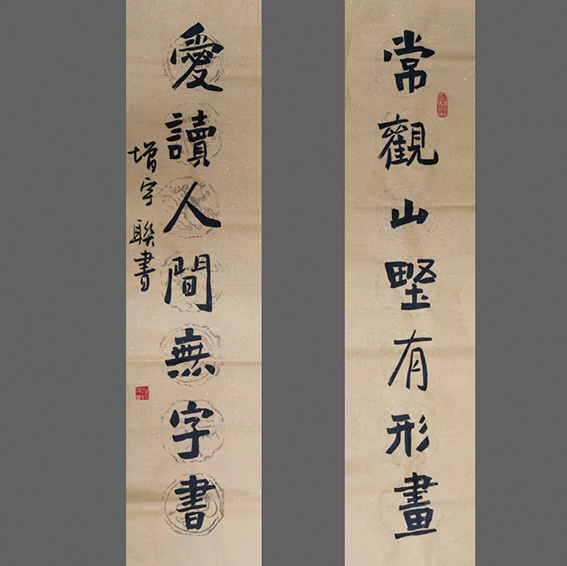 常觀山墅有形畫
愛讀人間無字書
增宇聯書